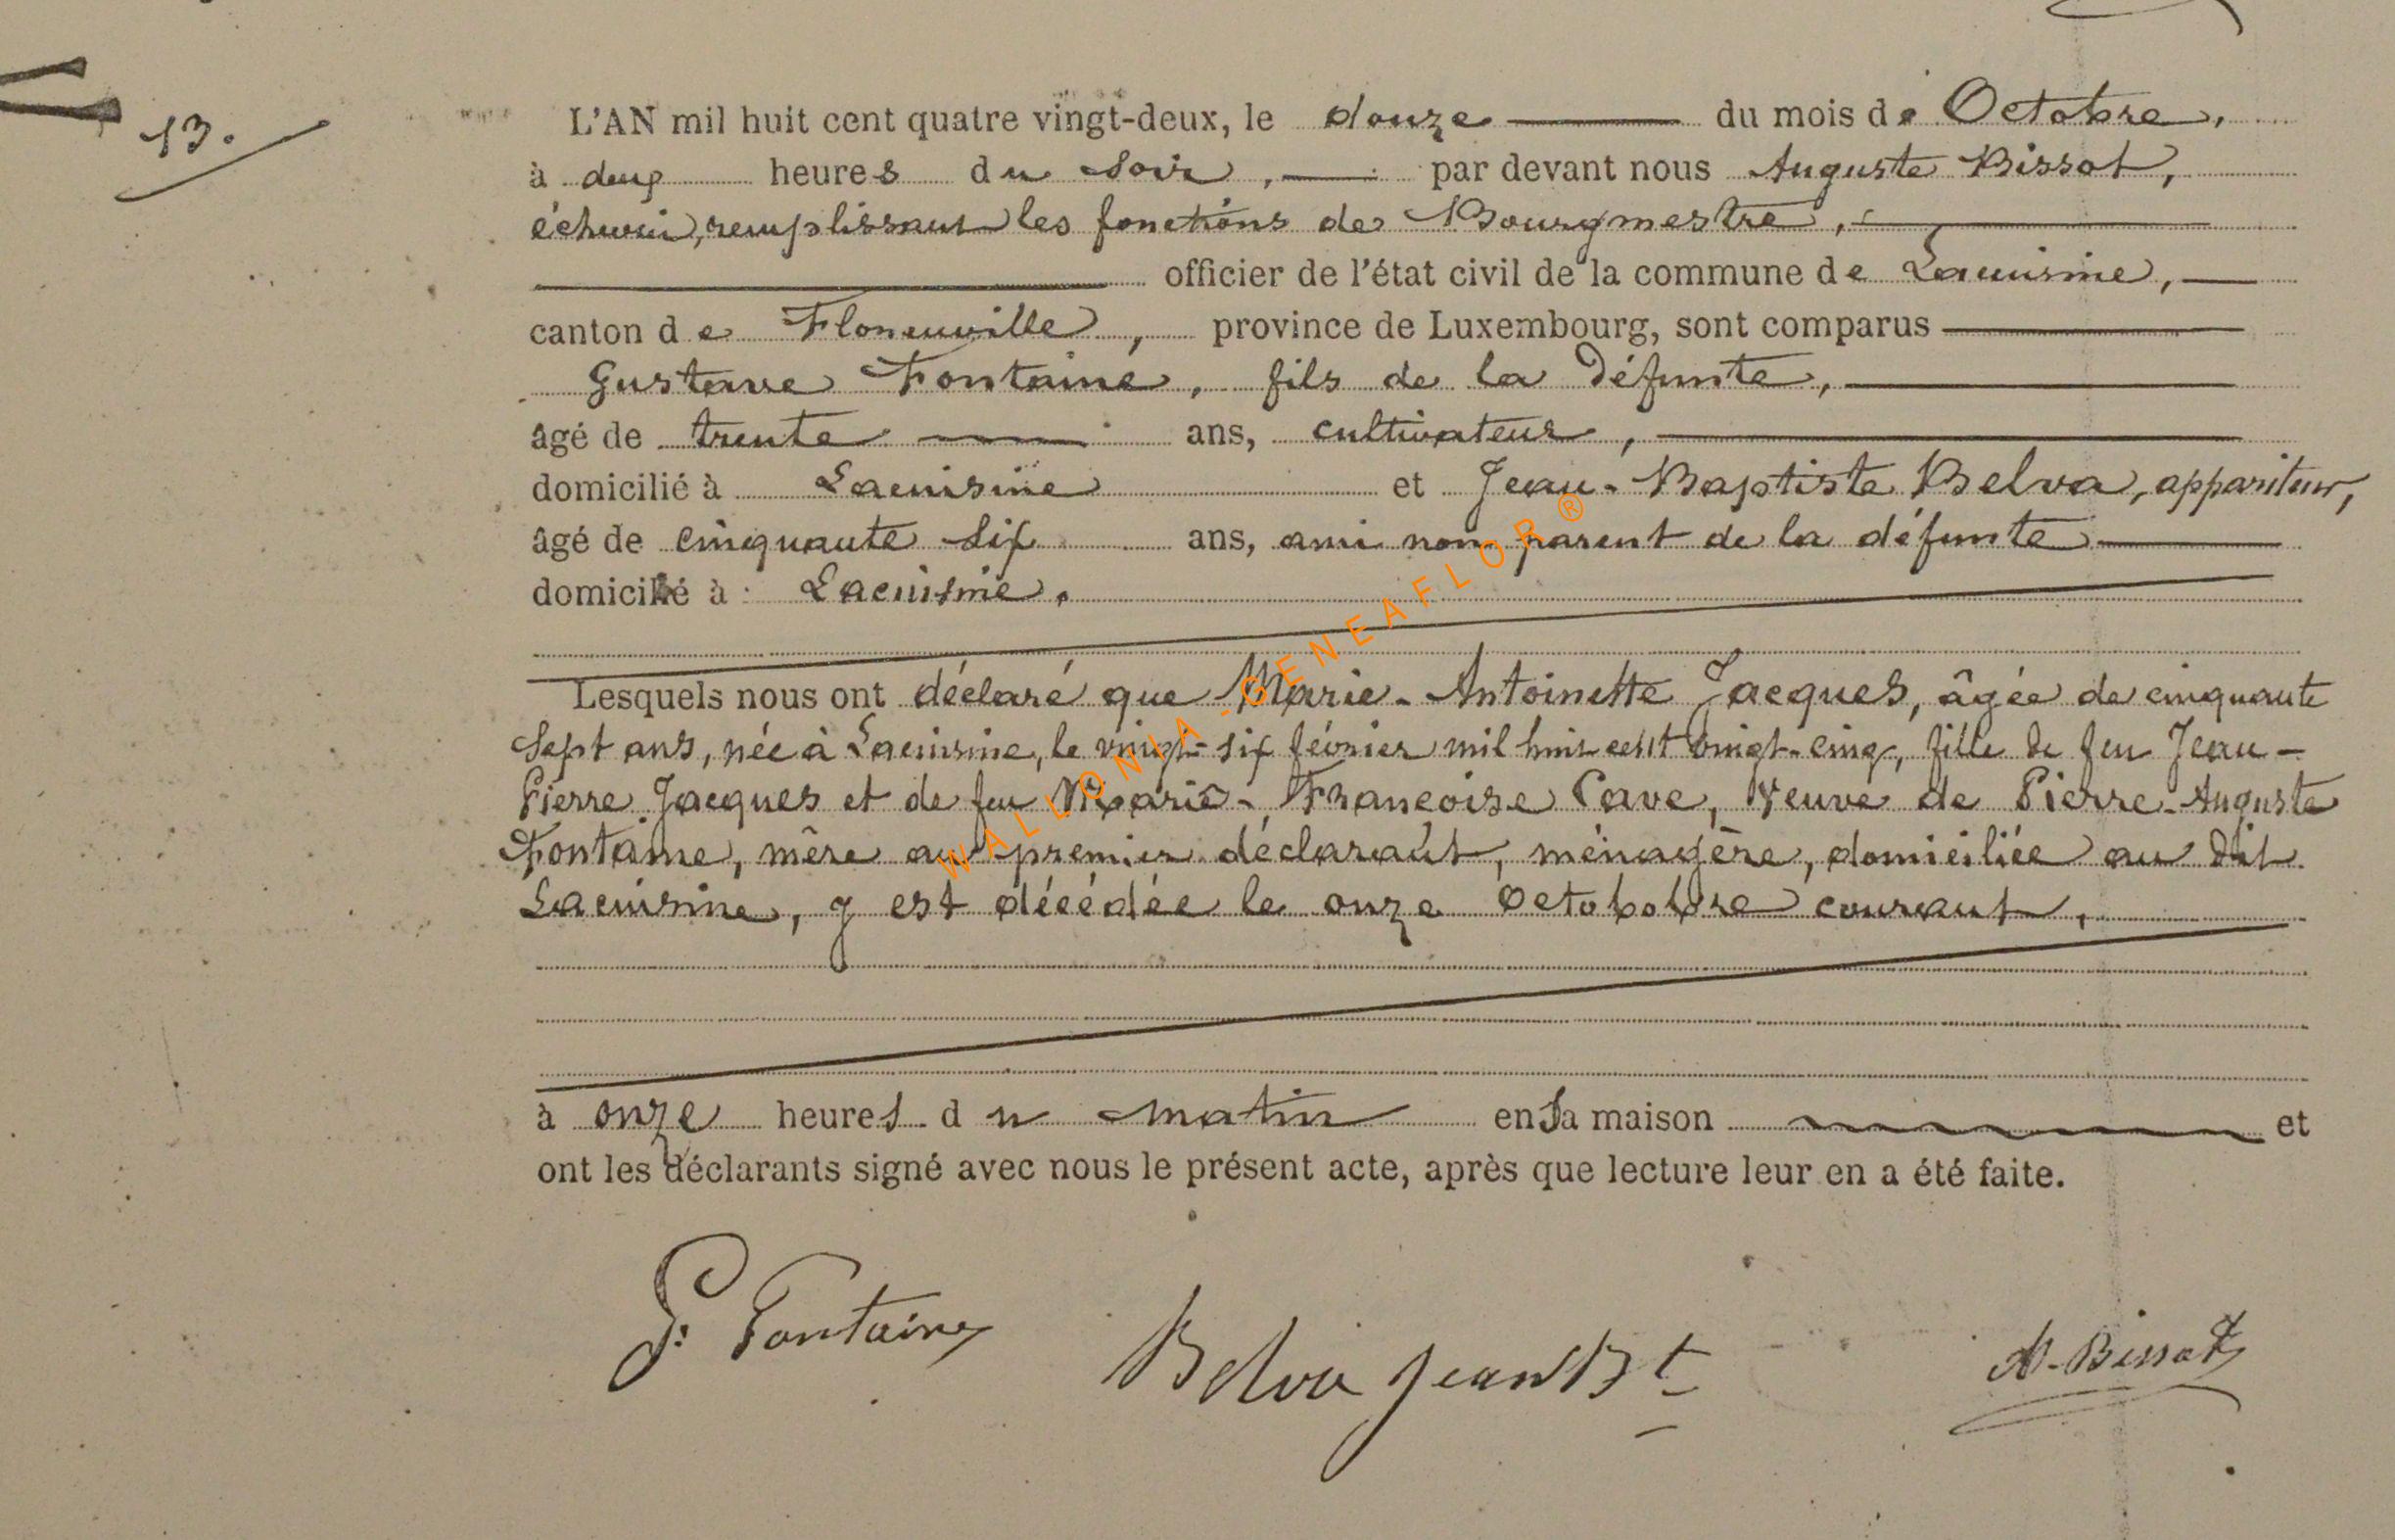 13.
L'AN mil huit cent quatre vingt-deux, le douze du mois de Octobre,
à deux heures du soir, par devant nous Auguste Bissot,
échevin, remplissant les fonctions de Bourgmestre,
officier de l'état civil de la commune de Lacuisine,
canton de Florenville, province de Luxembourg, sont comparus
Gustave Fontaine, fils de la défunte,
âgé de trente ans, cultivateur,
domicilié à Lacuisine et Jean-Baptiste Belva, appariteur,
âgé de cinquante six ans, ami non parent de la défunte
domicilié à Lacuisine.
Lesquels nous ont déclaré que Marie-Antoinette Jacques, âgée de cinquante
sept ans, née à Lacuisine, le vingt-six février mil huit cent vingt-cinq, fille de feu Jean-
Pierre Jacques et de feu Marie-Françoise Cave, Veuve de Pierre-Auguste
Fontaine, mère au premier déclarant, ménagère, domiciliée au dit
Lacuisine, y est décédée le onze Octobobre courant,
à onze heures du matin en sa maison et
ont les déclarants signé avec nous le présent acte, après que lecture leur en a été faite.
G. Fontaine
Belva Jean Bt
A. Bissot
WALLONIA-GENEAFLOR®